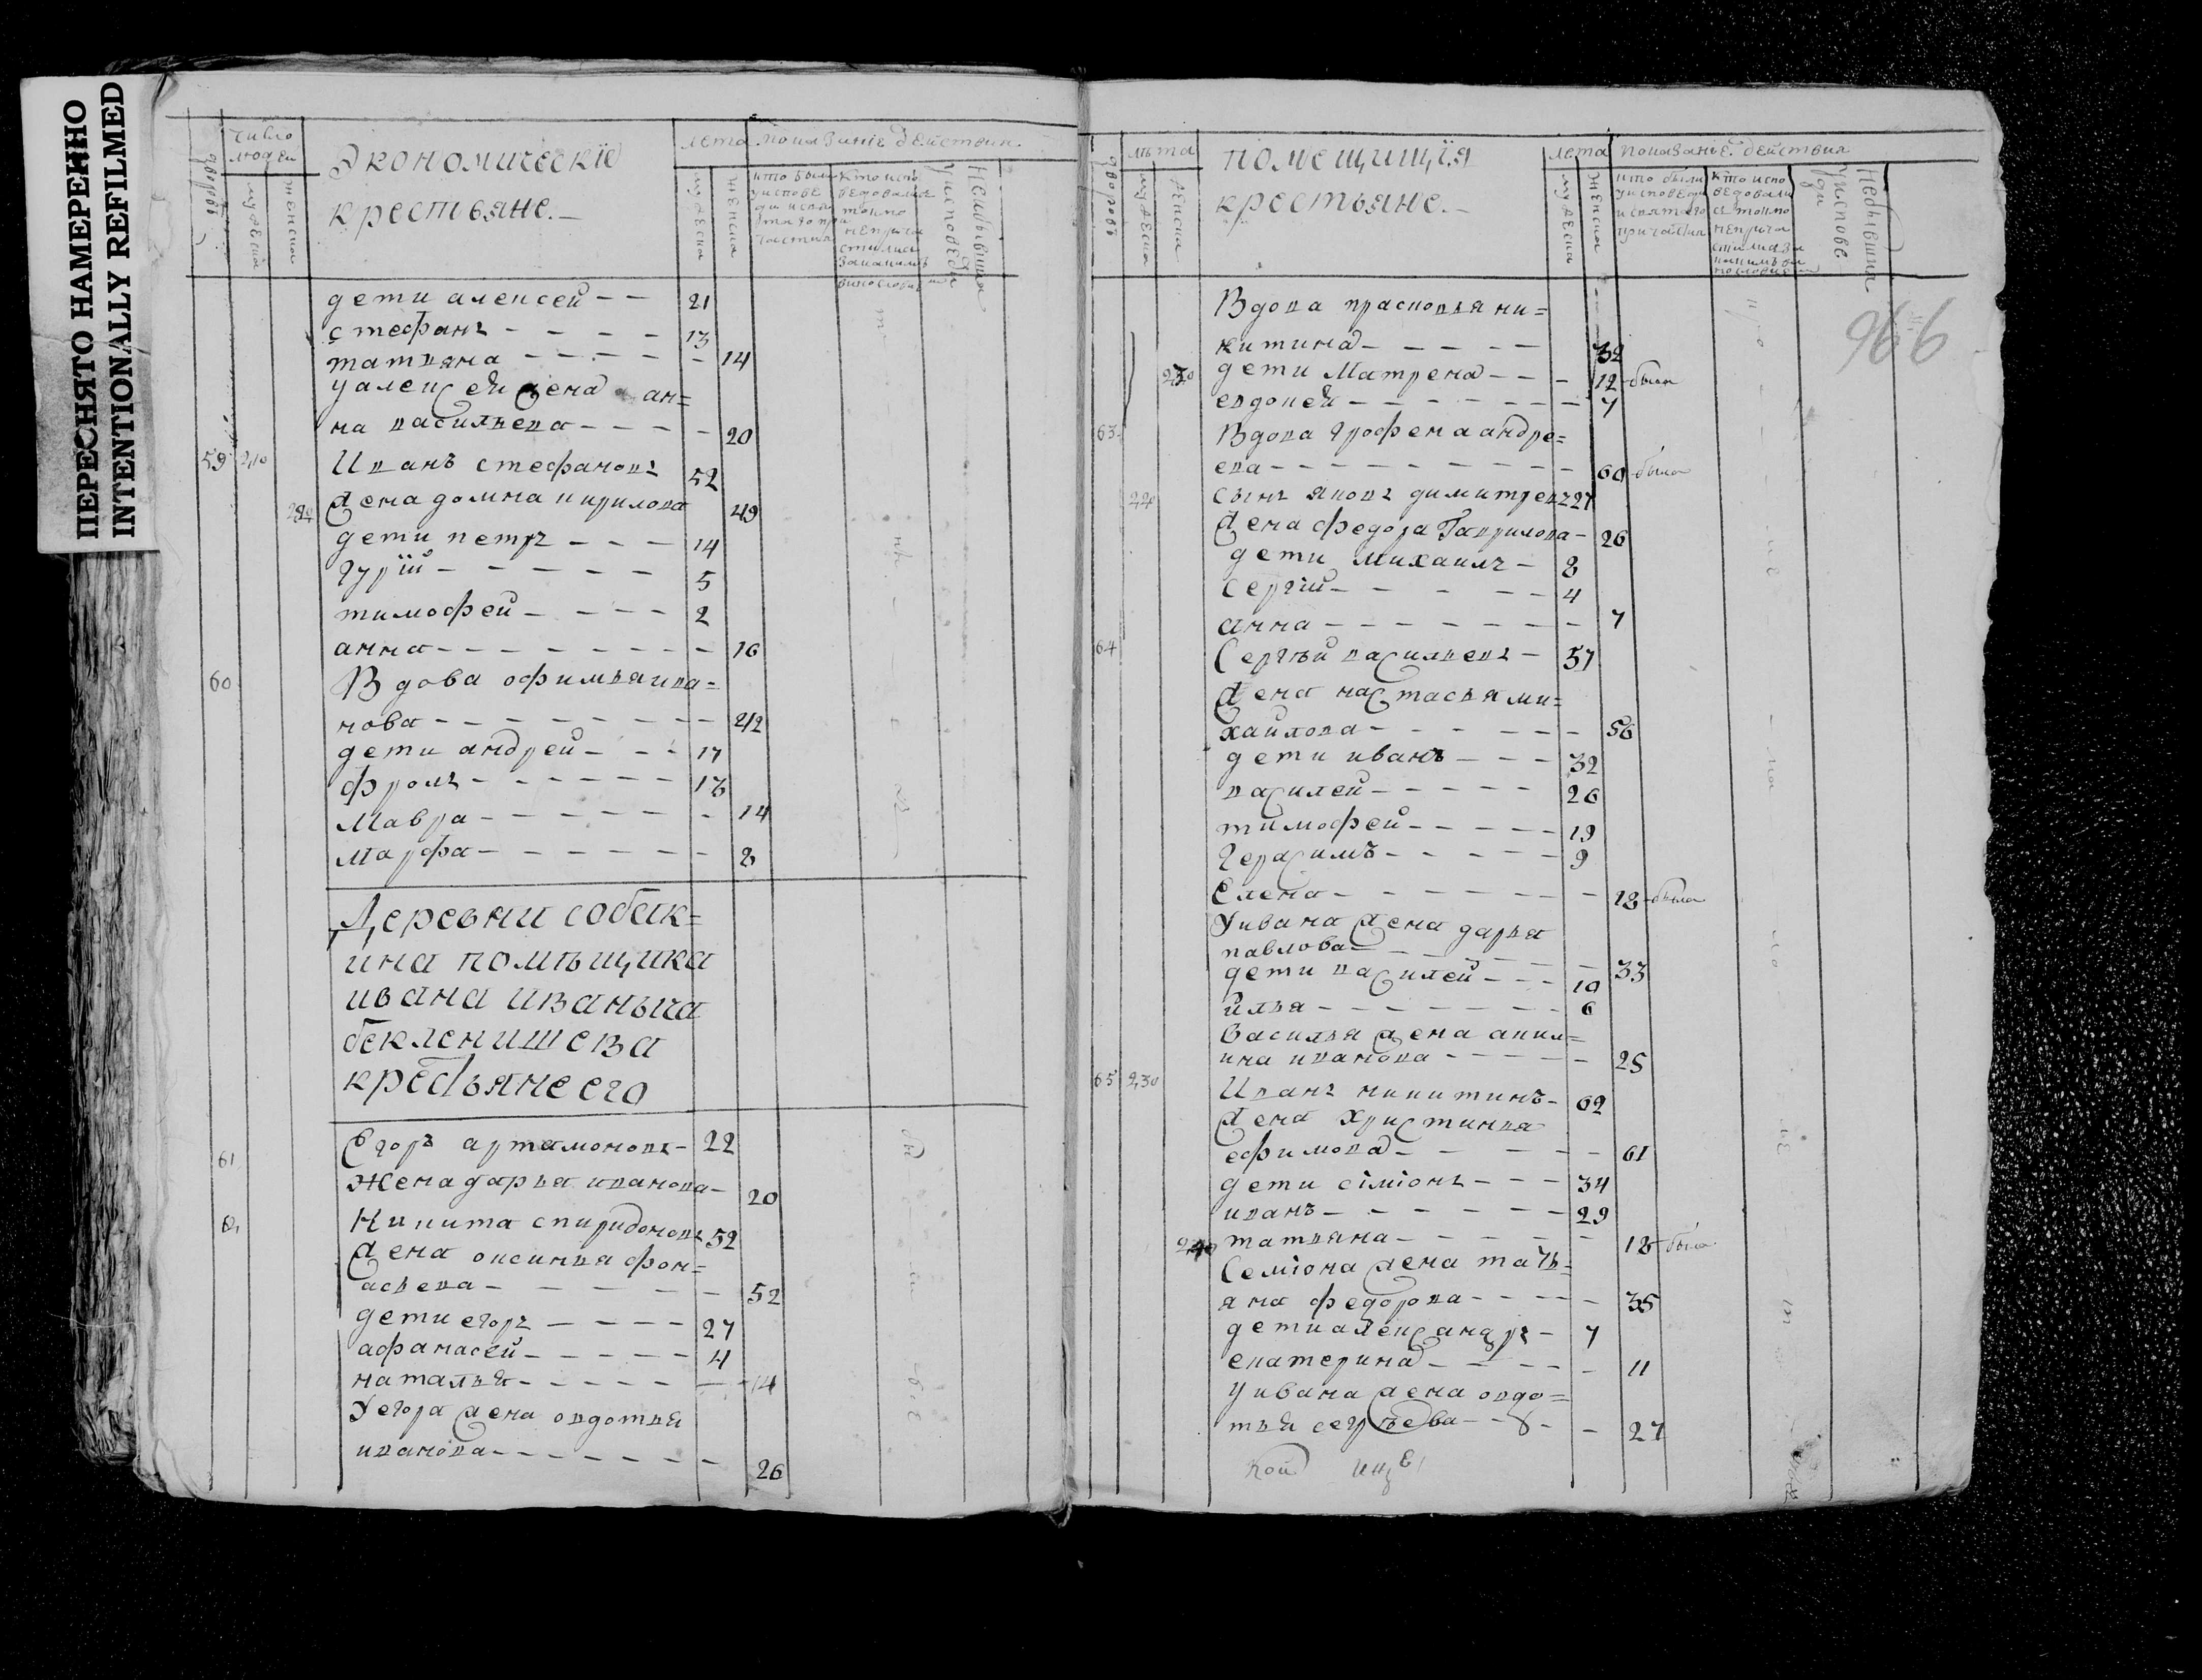 ПЕРЕСНЯТО НАМЕРЕННО
INTENTIONALLY REFILMED
число людей
Экономическіе
крестьяне.
лета
показаніе действии.
дворовъ
мужеска
женска
мужеска
женска
дети алексей - - 21
стефанъ - - - - 13
татьяна - - - - - 14
у алексея жена ан=
на васильева - - - - - 20
59 210 Иванъ стефановъ 52
жена домна кирилова 49
дети петръ - - - 14
гурїй - - - - - 5
тимофей - - - - 2
анна - - - - - - - - 16
60 Вдова офимья ива=
нова - - - - - - - - 42
дети андрей - - - 17
фролъ - - - - - -
Мавра - - - - - - 14
Марфа - - - - - - - 8
Деревни собак=
ина помѣщика
ивана иваныча
беклемишева
крестьяне его
61 Егоръ артамоновъ - 22
Жена дарья иванова - 20
62 Никита спиридоновъ 52
жена оксинья афон=
асьева - - - - - - 52
дети егоръ - - - - 27
афанасей - - - - - 4
наталья - - - - - 14
У егора жена овдотья
иванова - - - - - - - 26
помещищїя
крестьяне.
лѣта
лета
показанье действия
дворовъ
мужеска
женска
мужеска
женска
кто были
у исповеди
и святаго
причастия
кто испо
ведовали
сь токмо
не прича
Небывшия
у испове
ди
966
Вдова прасковья ни=
китина - - - - - 32
дети Матрена - - - 12 - была
евдокея - - - - - - - 7
63 Вдова Грофена андре=
ева - - - - - - - - - 60 - была
220 сынъ яковъ димитревъ 27
жена федора Гаврилова - 26
дети михаилъ - 8
Сергїй - - - - - 4
анна - - - - - - - 7
64 Сергѣй васильевъ - 57
жена настасья ми=
хайлова - - - - - - - 56
дети иванъ - - - 32
василей - - - - - 26
тимофей - - - - - 19
Герасимъ - - - - - 9
Елена - - - - - - - 18 - была
У ивана жена дарья
павлова - - - - - - 33
дети василей - - - 10
илья - - - - - - - 6
василья жена акил=
ина иванова - - - - - 25
65 230 Иванъ никитинъ - 62
жена христинья
ефимова - - - - - 61
дети сїмїонъ - - - 34
иванъ - - - - - - 29
240 татьяна - - - - - 18 - была
Семїона жена тать=
яна федорова - - - - - 35
дети александръ - 7
екатерина - - - - - 11
У ивана жена овдо=
тья сергѣева - - - - 27